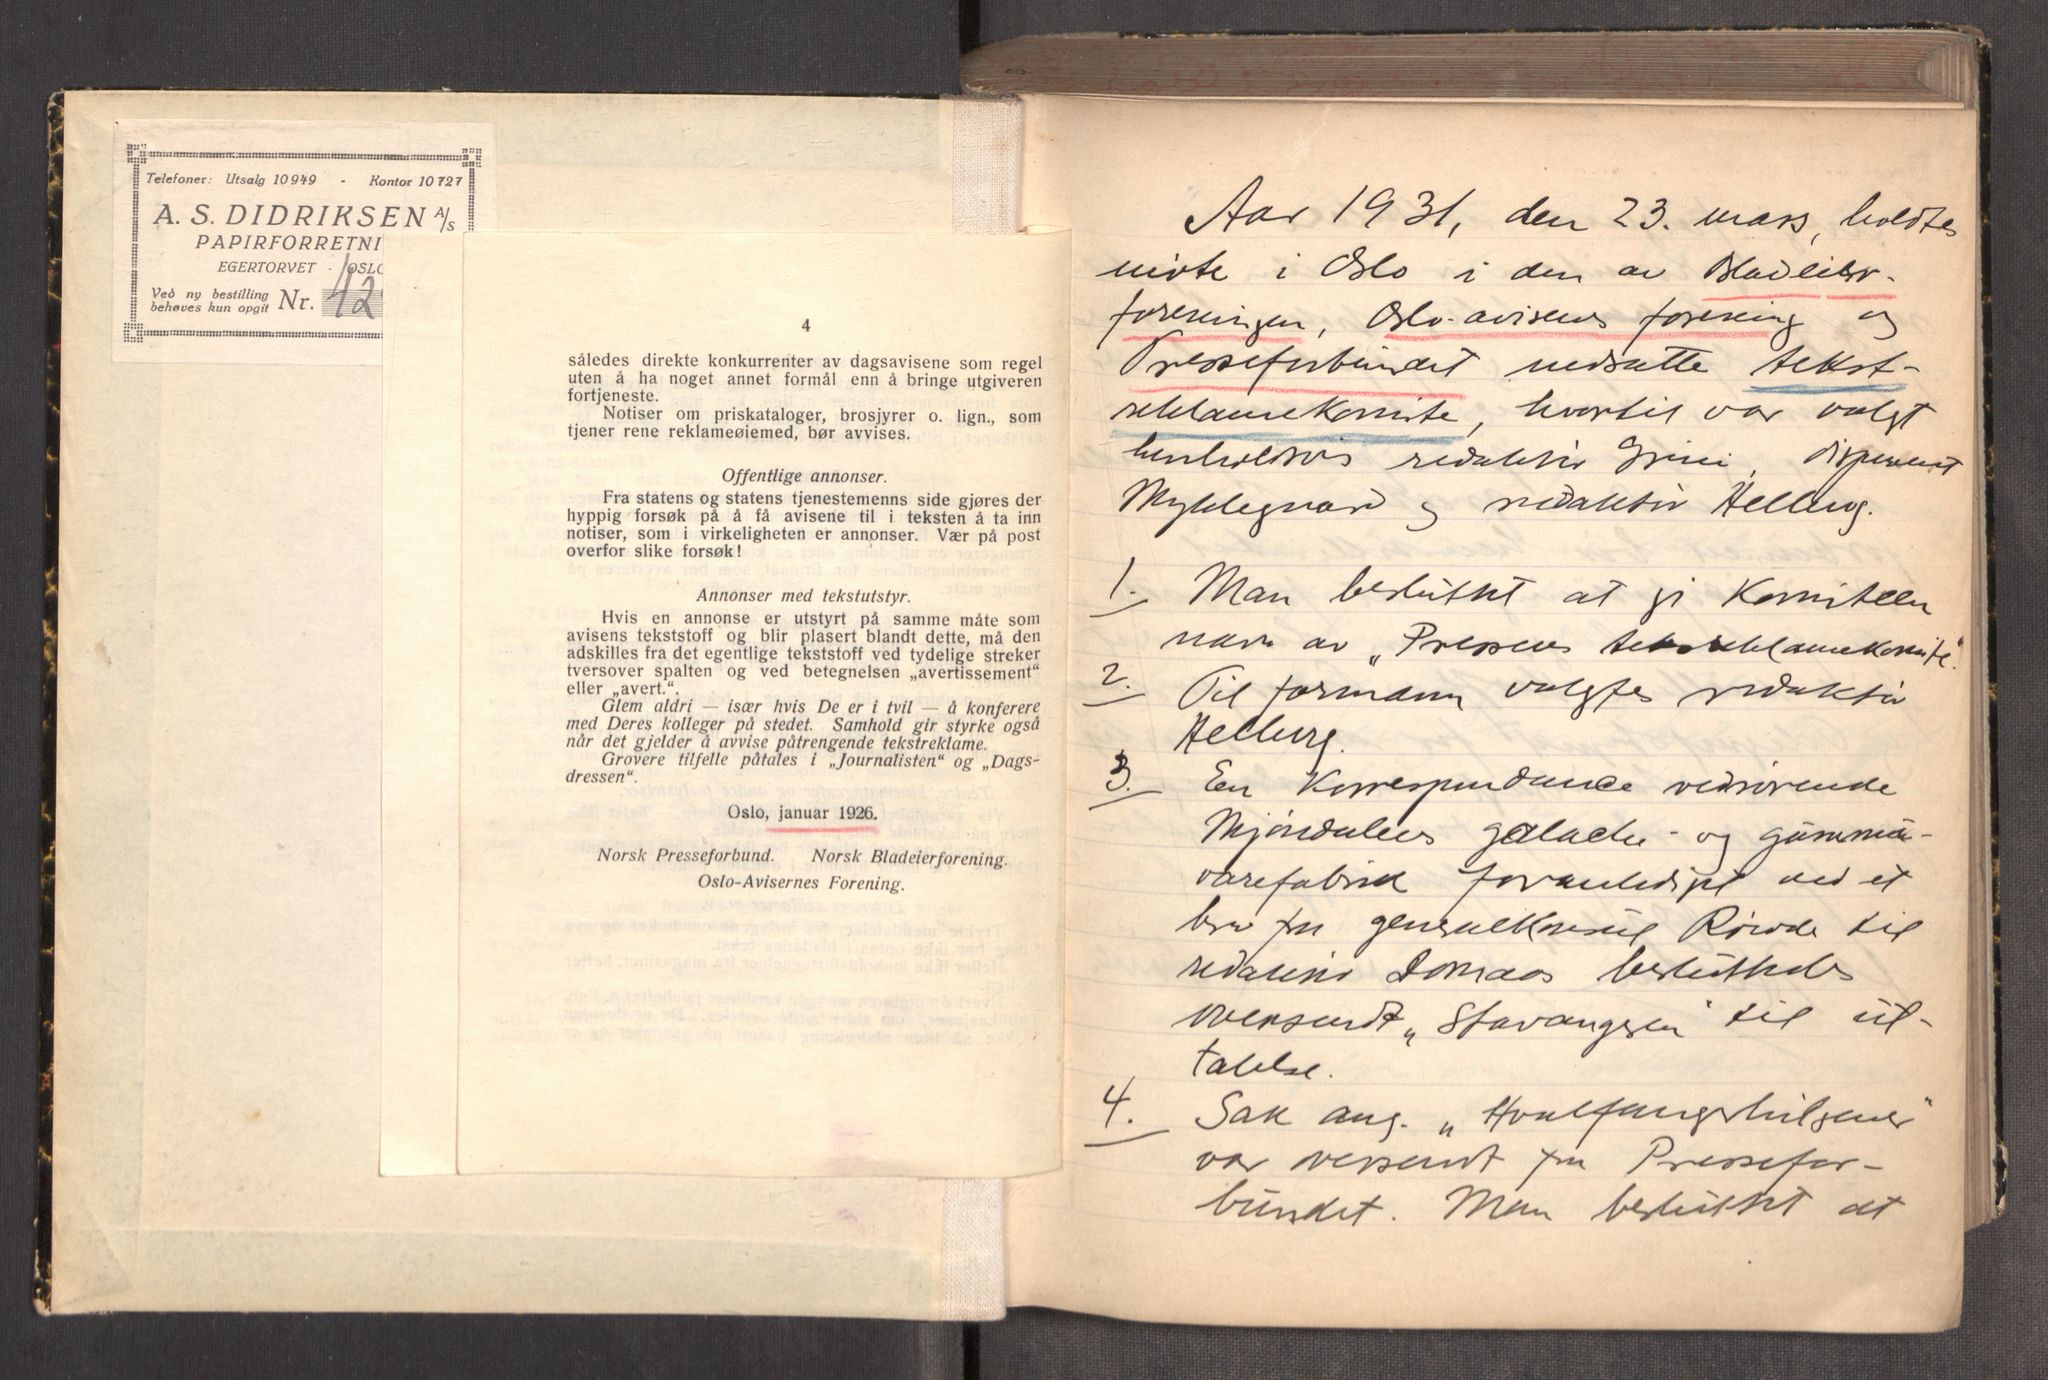 Telefoner: Utsalg 10949 - Kontor 10727
A. S. DIDRIKSEN A/S
PAPIRFORRETNI
EGERTORVET · OSLO
Ved ny bestilling
behøves kun opgit Nr. 42
4
således direkte konkurrenter av dagsavisene som regel
uten å ha noget annet formål enn å bringe utgiveren
fortjeneste.
Notiser om priskataloger, brosjyrer o. lign., som
tjener rene reklameøiemed, bør avvises.
Offentlige annonser.
Fra statens og statens tjenestemenns side gjøres der
hyppig forsøk på å få avisene til i teksten å ta inn
notiser, som i virkeligheten er annonser. Vær på post
overfor slike forsøk!
Annonser med tekstutstyr.
Hvis en annonse er utstyrt på samme måte som
avisens tekststoff og blir plasert blandt dette, må den
adskilles fra det egentlige tekststoff ved tydelige streker
tversover spalten og ved betegnelsen „avertissement“
eller „avert.“.
Glem aldri — især hvis De er i tvil — å konferere
med Deres kolleger på stedet. Samhold gir styrke også
når det gjelder å avvise påtrengende tekstreklame.
Grovere tilfelle påtales i „Journalisten“ og „Dags-
dressen“.
Oslo, januar 1926.
Norsk Presseforbund. Norsk Bladeierforening.
Oslo-Avisernes Forening.
Aar 1931, den 23. mars, holdtes
møte i Oslo i den av Bladeier-
foreningen, Oslo-avisenes forening og
Presseforbundet nedsatte tekst-
reklamekomite, hvortil var valgt
henholdsvis redaktør Grini, disponent
Myklegaard og redaktør Helberg.
1. Man besluttet at gi Komiteen
navn av „Pressens tekstreklamekomite“.
2. Til formann valgtes redaktør
Helberg.
3. En Korrespondance vedrørende
Mjøndalens galache- og gummi-
varefabrik foranlediget ved et
brev fra generalkonsul Röwde til
redaktør Domaas besluttedes
oversendt „Stavangeren“ til ut-
talelse.
4. Sak ang. „Hvalfangsthilsener“
var oversendt fra Pressefor-
bundet. Man besluttet at